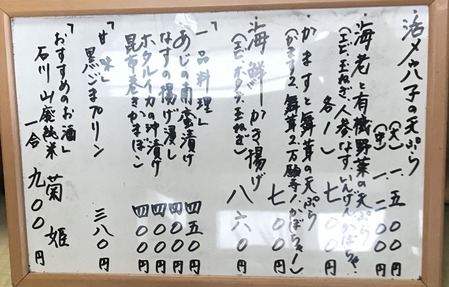 活メゴチの天ぷら
(大) 一五〇〇円
(中) 一二〇〇円
・海老と有機野菜の天ぷら
(エビ、玉ねぎ、人参、なす、いんげん、かぼちゃ
各1) 七〇〇円
・かますと舞茸の天ぷら
(かます2、舞茸2、万願寺1、かぼちゃ1) 七〇〇円
・海鮮かき揚げ 八六〇円
(エビ、ホタテ、玉ねぎ)
「一品料理」
あじの南蛮漬け 四五〇円
なすの揚げ浸し 四〇〇円
ホタルイカの沖漬け 四〇〇円
昆布巻きかまぼこ 四〇〇円
「甘味」
黒ごまプリン 三八〇円
「おすすめのお酒」
石川 山廃純米 菊姫
一合 九〇〇円